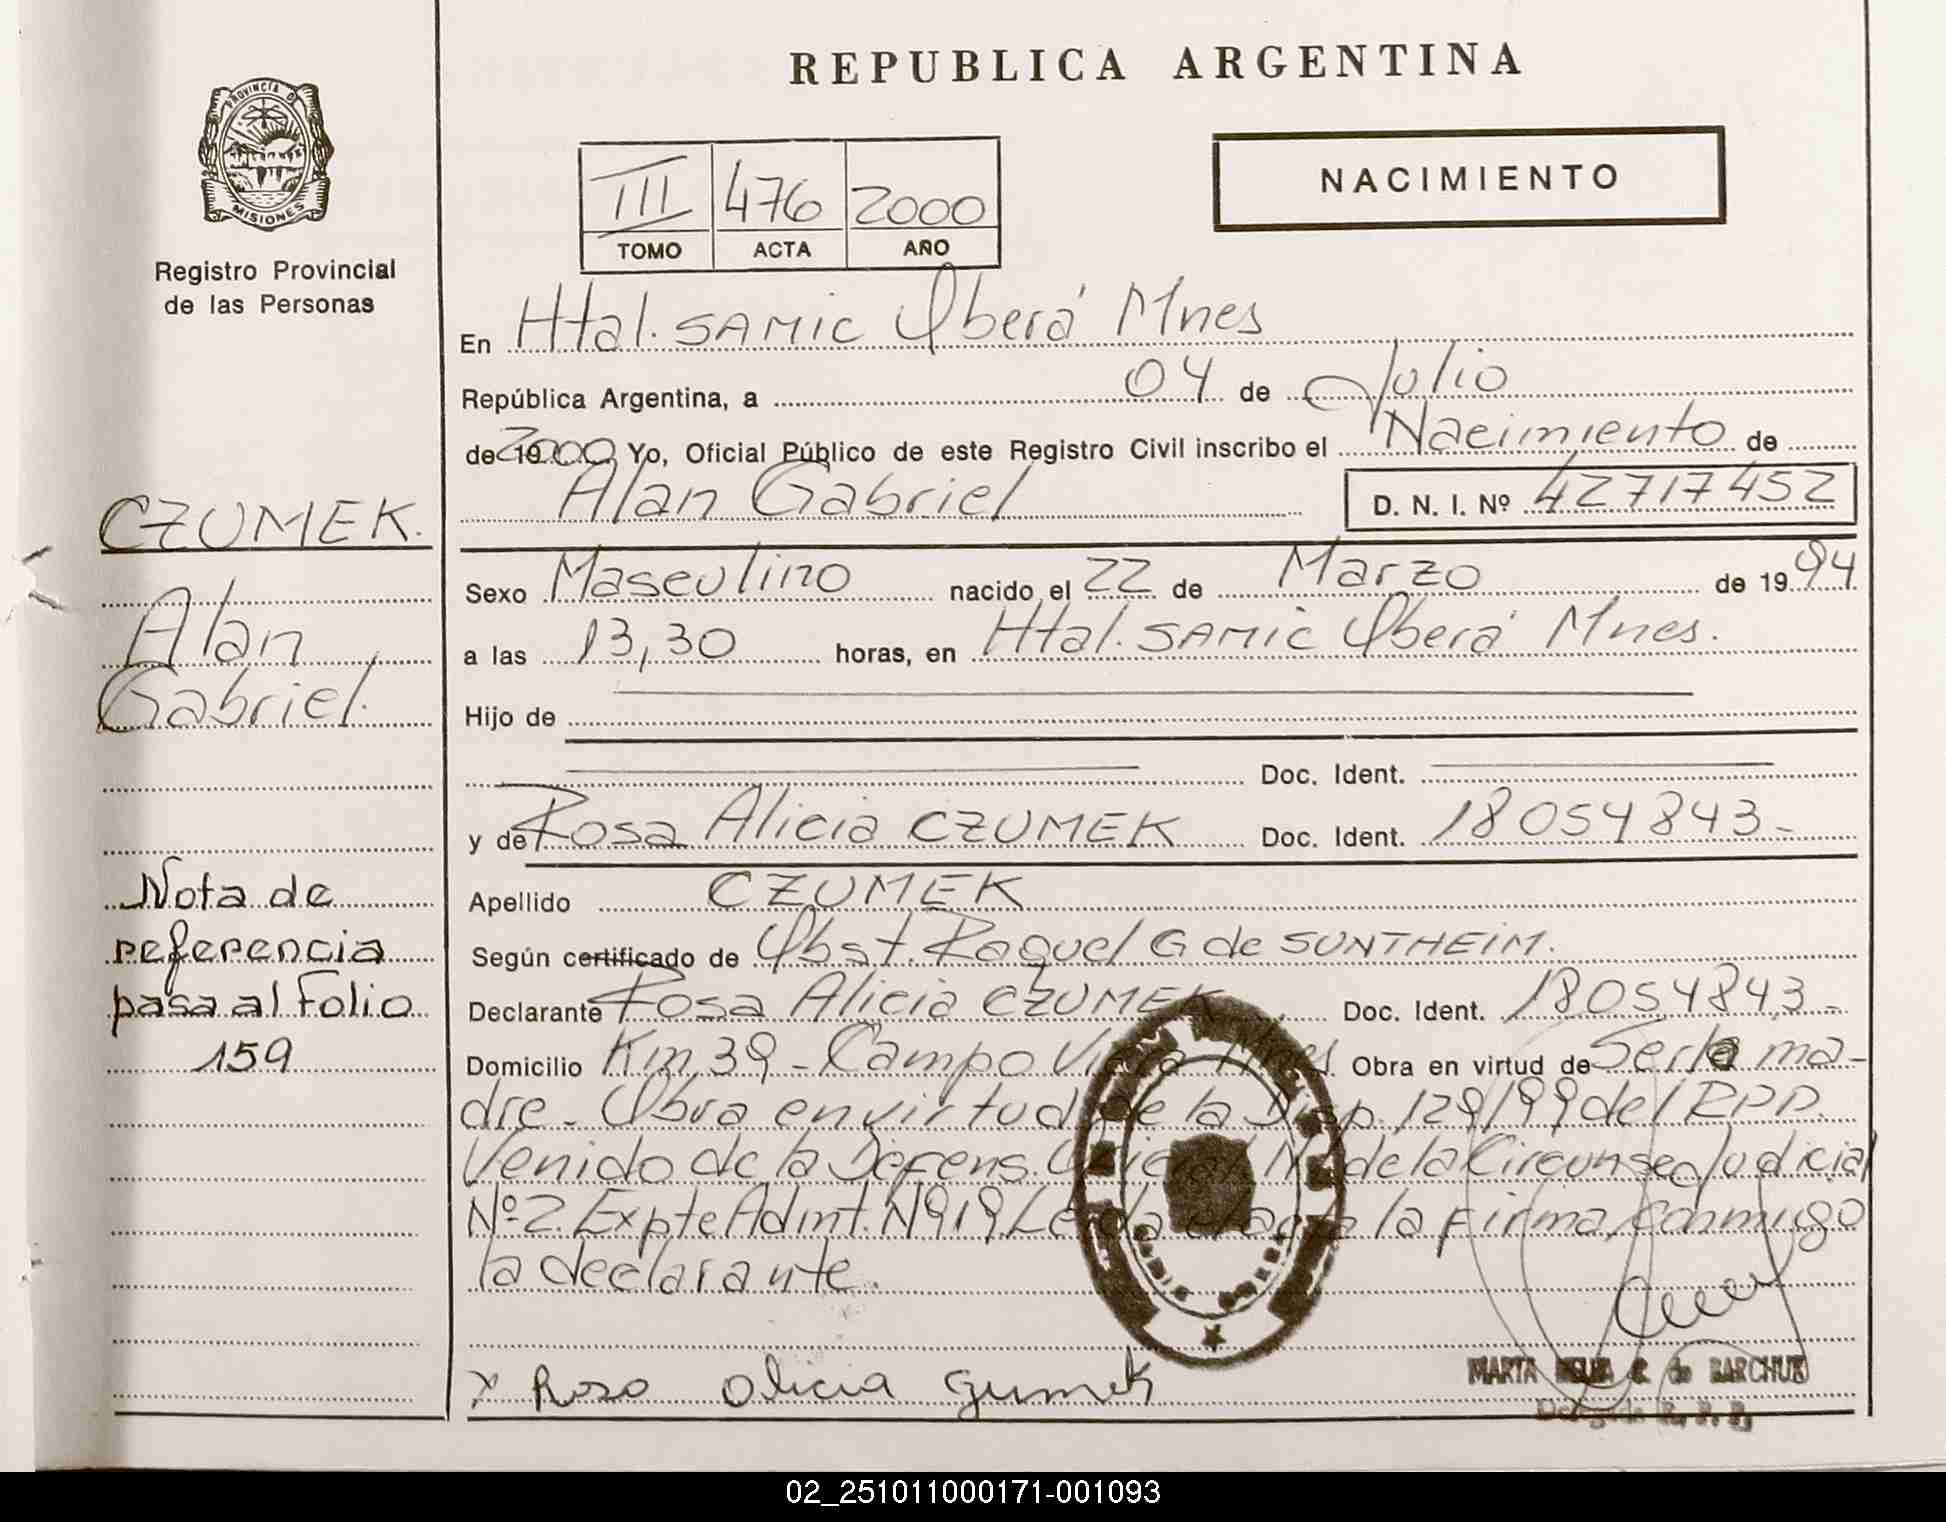 REPUBLICA ARGENTINA
PROVINCIA DE
MISIONES
Registro Provincial
de las Personas
III 476 2000
TOMO ACTA AÑO
NACIMIENTO
En Htal. SAMIC Oberá Mnes
República Argentina, a 04 de Julio
de 2000 Yo, Oficial Público de este Registro Civil inscribo el Nacimiento de
Alan Gabriel D. N. I. Nº 42717452
CZUMEK.
Alan
Gabriel.
Sexo Masculino nacido el 22 de Marzo de 1994
a las 13,30 horas, en Htal. SAMIC Oberá Mnes.
Hijo de
Doc. Ident.
y de Rosa Alicia CZUMEK Doc. Ident. 18054843-
Nota de
referencia
pasa al Folio
159
Apellido CZUMEK
Según certificado de Obst. Raquel G de SUNTHEIM.
Declarante Rosa Alicia CZUMEK Doc. Ident. 18054843-
Domicilio Km 39 - Campo Viera Mnes. Obra en virtud de Ser la ma-
dre - Obra en virtud de la Disp. 129/99 del RPP.
Venido de la Defens. de la Circunsc Judicial
Nº 2. Expte Admt. Nº 919. Leída el acta la firma conmigo
la declarante.
x Rosa Alicia Çumek
MARTA de BARCHUK
Delegada R. P. P.
02_251011000171-001093